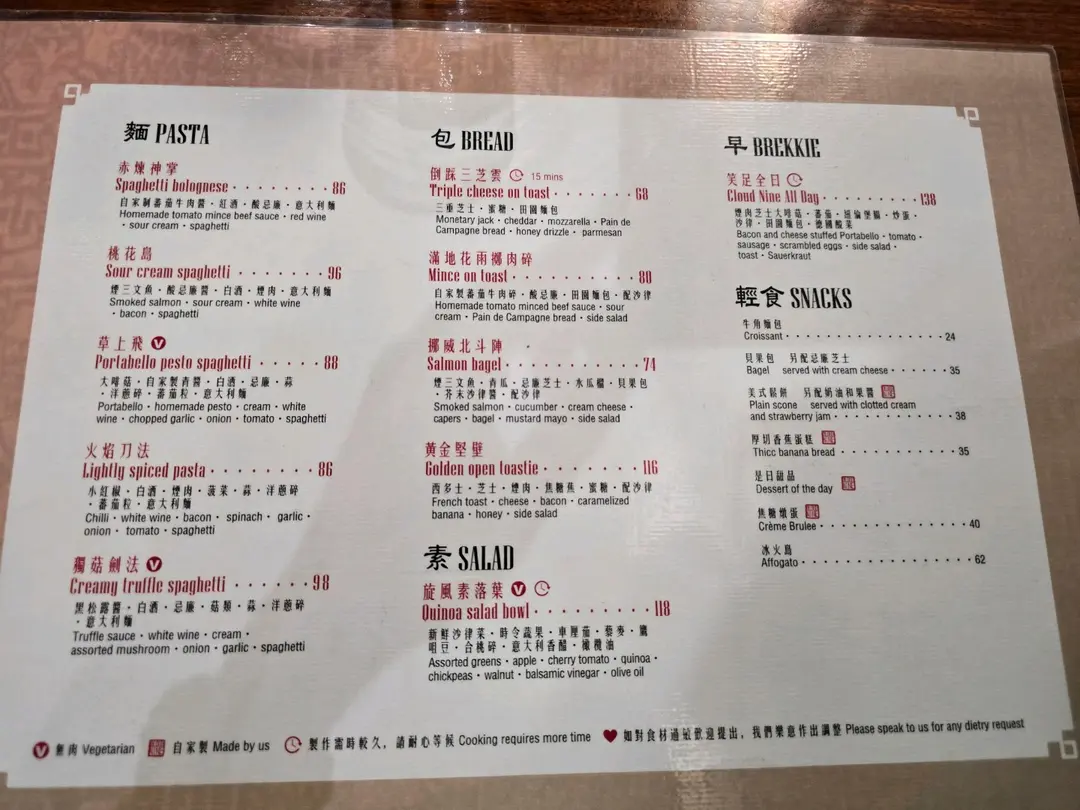 麵 PASTA
赤煉神掌
Spaghetti bolognese · · · · · · · · 86
自家制蕃茄牛肉醬 · 紅酒 · 酸忌廉 · 意大利麵
Homemade tomato mince beef sauce · red wine
· sour cream · spaghetti
桃花島
Sour cream spaghetti · · · · · · · 96
煙三文魚 · 酸忌廉醬 · 白酒 · 煙肉 · 意大利麵
Smoked salmon · sour cream · white wine
· bacon · spaghetti
草上飛 V
Portabello pesto spaghetti · · · · · 88
大啡菇 · 自家製青醬 · 白酒 · 忌廉 · 蒜
· 洋蔥碎 · 蕃茄粒 · 意大利麵
Portabello · homemade pesto · cream · white
wine · chopped garlic · onion · tomato · spaghetti
火焰刀法
Lightly spiced pasta · · · · · · · · 86
小紅椒 · 白酒 · 煙肉 · 菠菜 · 蒜 · 洋蔥碎
· 蕃茄粒 · 意大利麵
Chilli · white wine · bacon · spinach · garlic ·
onion · tomato · spaghetti
獨菇劍法 V
Creamy truffle spaghetti · · · · · · 98
黑松露醬 · 白酒 · 忌廉 · 菇類 · 蒜 · 洋蔥碎
· 意大利麵
Truffle sauce · white wine · cream ·
assorted mushroom · onion · garlic · spaghetti
包 BREAD
倒踩三芝雲 15 mins
Triple cheese on toast · · · · · · · 68
三重芝士 · 蜜糖 · 田園麵包
Monetary jack · cheddar · mozzarella · Pain de
Campagne bread · honey drizzle · parmesan
滿地花雨擲肉碎
Mince on toast · · · · · · · · · · 80
自家製蕃茄牛肉碎 · 酸忌廉 · 田園麵包 · 配沙律
Homemade tomato minced beef sauce · sour
cream · Pain de Campagne bread · side salad
挪威北斗陣
Salmon bagel · · · · · · · · · · · 74
煙三文魚 · 青瓜 · 忌廉芝士 · 水瓜欖 · 貝果包
· 芥末沙律醬 · 配沙律
Smoked salmon · cucumber · cream cheese ·
capers · bagel · mustard mayo · side salad
黃金堅壁
Golden open toastie · · · · · · · · 116
西多士 · 芝士 · 煙肉 · 焦糖蕉 · 蜜糖 · 配沙律
French toast · cheese · bacon · caramelized
banana · honey · side salad
素 SALAD
旋風素落葉 V
Quinoa salad bowl · · · · · · · · · 118
新鮮沙律菜 · 時令蔬果 · 車厘茄 · 藜麥 · 鷹
咀豆 · 合桃碎 · 意大利香醋 · 橄欖油
Assorted greens · apple · cherry tomato · quinoa ·
chickpeas · walnut · balsamic vinegar · olive oil
早 BREKKIE
笑足全日
Cloud Nine All Day · · · · · · · · · 138
煙肉芝士大啡菇 · 蕃茄 · 紐倫堡腸 · 炒蛋 ·
沙律 · 田園麵包 · 德國酸菜
Bacon and cheese stuffed Portabello · tomato ·
sausage · scrambled eggs · side salad ·
toast · Sauerkraut
輕食 SNACKS
牛角麵包
Croissant · · · · · · · · · · · · · · · · 24
貝果包 另配忌廉芝士
Bagel served with cream cheese · · · · · · 35
美式鬆餅 另配奶油和果醬
Plain scone served with clotted cream
and strawberry jam · · · · · · · · · · · · 38
厚切香蕉蛋糕
Thicc banana bread · · · · · · · · · · · · 35
是日甜品
Dessert of the day
焦糖燉蛋
Crème Brulee · · · · · · · · · · · · · · 40
冰火島
Affogato · · · · · · · · · · · · · · · · 62
V 無肉 Vegetarian 自家製 Made by us 製作需時較久，請耐心等候 Cooking requires more time 如對食材過敏歡迎提出，我們樂意作出調整 Please speak to us for any dietry request